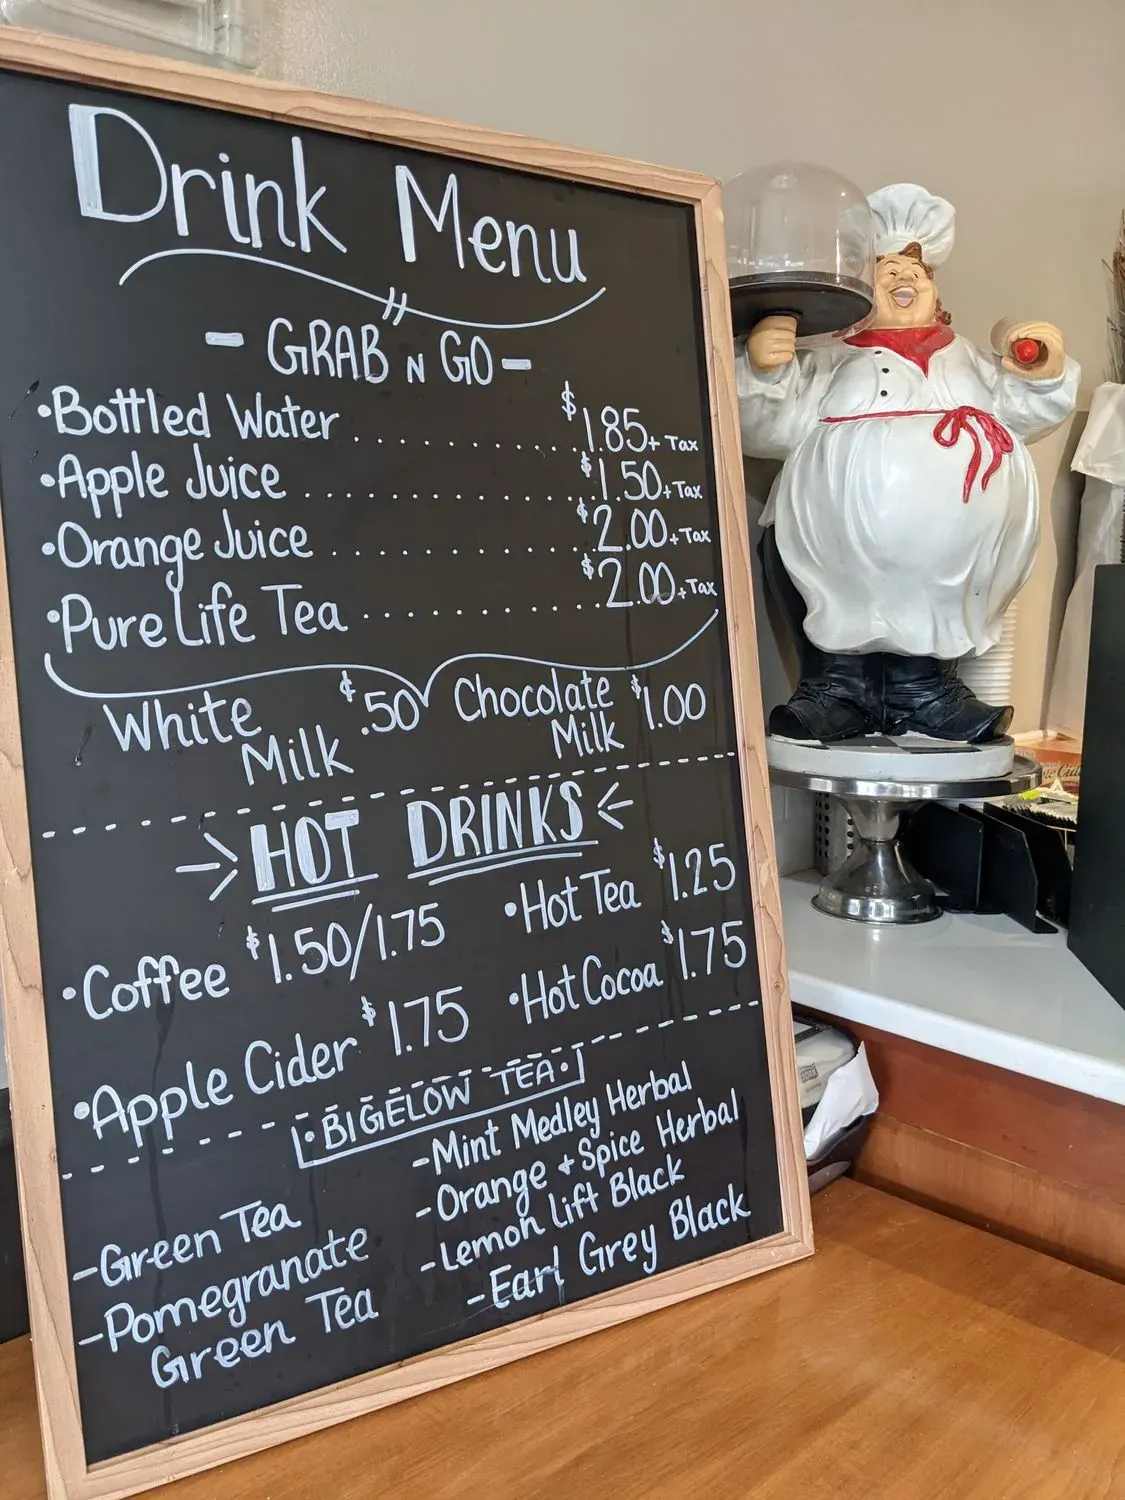 Drink Menu
- GRAB N GO -
•Bottled Water ............ $1.85 + Tax
•Apple Juice ................ $1.50 + Tax
•Orange Juice .............. $2.00 + Tax
•Pure Life Tea ............ $2.00 + Tax
White Milk $.50
Chocolate Milk $1.00
HOT DRINKS
•Coffee $1.50/1.75
•Hot Tea $1.25
•Apple Cider $1.75
•Hot Cocoa $1.75
•BIGELOW TEA•
-Green Tea
-Pomegranate
Green Tea
-Mint Medley Herbal
-Orange + Spice Herbal
-Lemon Lift Black
-Earl Grey Black